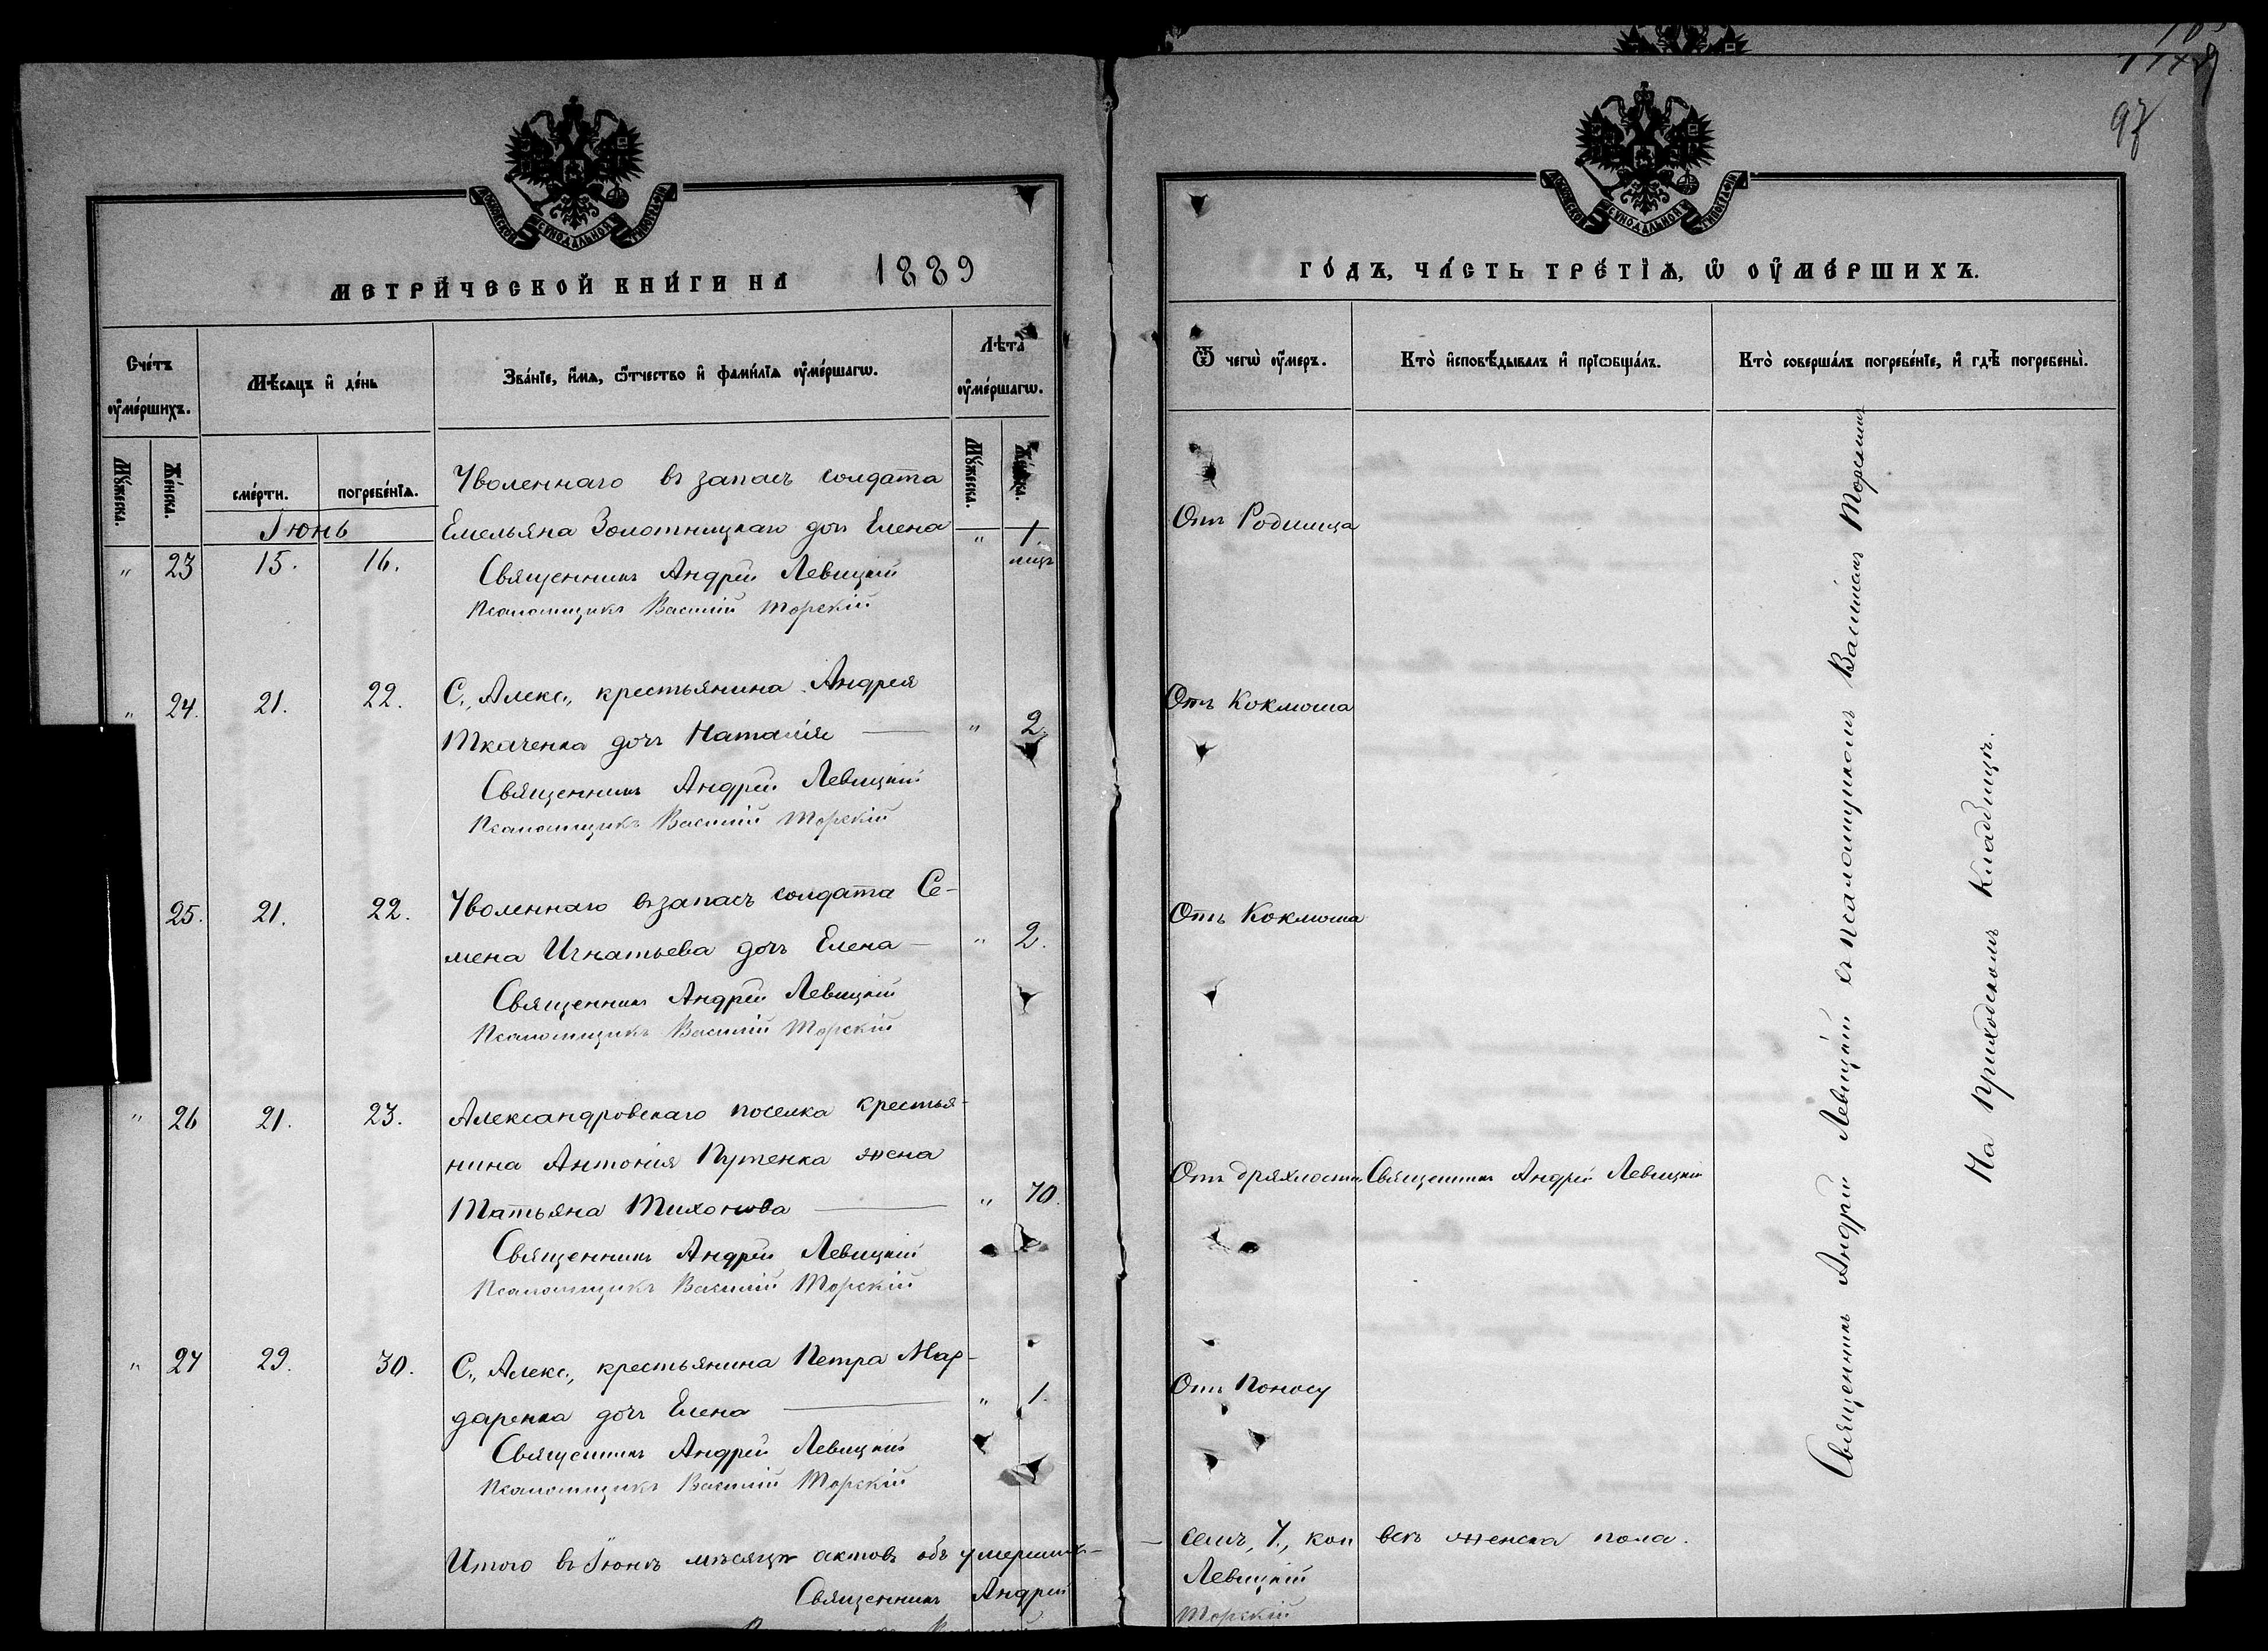 97
МОСКОВСКОЙ СУНОДАЛЬНОЙ ТИПОГРАФІИ
МОСКОВСКОЙ СУНОДАЛЬНОЙ ТИПОГРАФІИ
МЕТРИЧЕСКОЙ КНИГИ НА 1889
ГОДЪ, ЧАСТЬ ТРЕТІѦ, Ѿ ОУМЕРШИХЪ.
Счетъ оумершихъ.
Мѣсяцъ и день
Званіе, имѧ, ѻтчество и фамиліѧ оумершагѡ.
Лѣта оумершагѡ.
Ѿ чегѡ оумеръ.
Кто исповѣдывалъ и пріѡбщалъ.
Кто совершалъ погребеніе, и гдѣ погребены.
Мужеска.
Женска.
смерти.
погребеніѧ.
Мужеска.
Женска.
Іюнь
Уволеннаго въ запасъ солдата
Емельяна Золотницкаго дочь Елена " 1 мцъ
Отъ Родимца
" 23 15. 16.
Священникъ Андрей Левицкій
Псаломщикъ Василій Торскій
" 24. 21. 22. С., Алекс., крестьянина Андрея
Отъ Коклюша
Ткаченка дочь Наталія " 2.
Священникъ Андрей Левицкій
Псаломщикъ Василій Торскій
25. 21. 22. Уволеннаго въ запасъ солдата Се-
Отъ Коклюша
мена Игнатьева дочь Елена " 2.
Священникъ Андрей Левицкій
Псаломщикъ Василій Торскій
" 26 21. 23. Александровскаго поселка крестья-
нина Антонія Путенка жена
Татьяна Тихонова " 70.
Отъ дряхлости Священникъ Андрей Левицкій
Священникъ Андрей Левицкій
Псаломщикъ Василій Торскій
" 27 29. 30. С., Алекс., крестьянина Петра Мар-
даренка дочь Елена " 1.
Отъ Поносу
Священникъ Андрей Левицкій
Псаломщикъ Василій Торскій
Священникъ Андрей Левицкій съ псаломщикомъ Василіемъ Торскимъ
На приходскомъ кладбищѣ.
Итого въ Іюнѣ мѣсяцѣ актовъ объ умершихъ — семь, 7., кои всѣ женска пола.
Священникъ Андрей Левицкій
Торскій